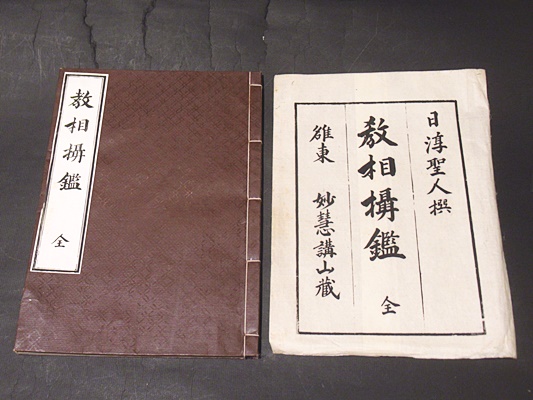 教相攝鑑 全
日淳聖人撰
教相攝鑑 全
雒東 妙慧講山藏